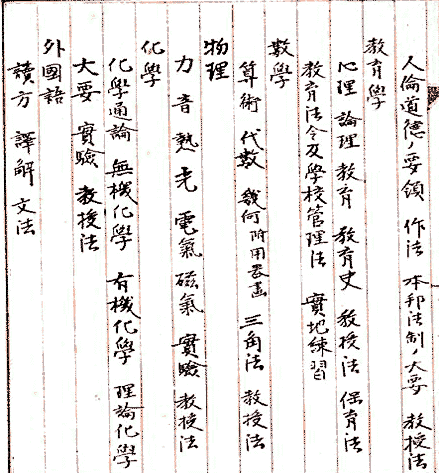 人倫道德ノ要領 作法 本邦法制ノ大要 教授法
教育學
心理 論理 教育 教育史 教授法 保育法
教育法令及學校管理法 實地練習
數學
算術 代數 幾何 附用器畫 三角法 教授法
物理
力 音 熱 光 電氣 磁氣 實驗 教授法
化學
化學通論 無機化學 有機化學 理論化學
大要 實驗 教授法
外國語
讀方 譯解 文法